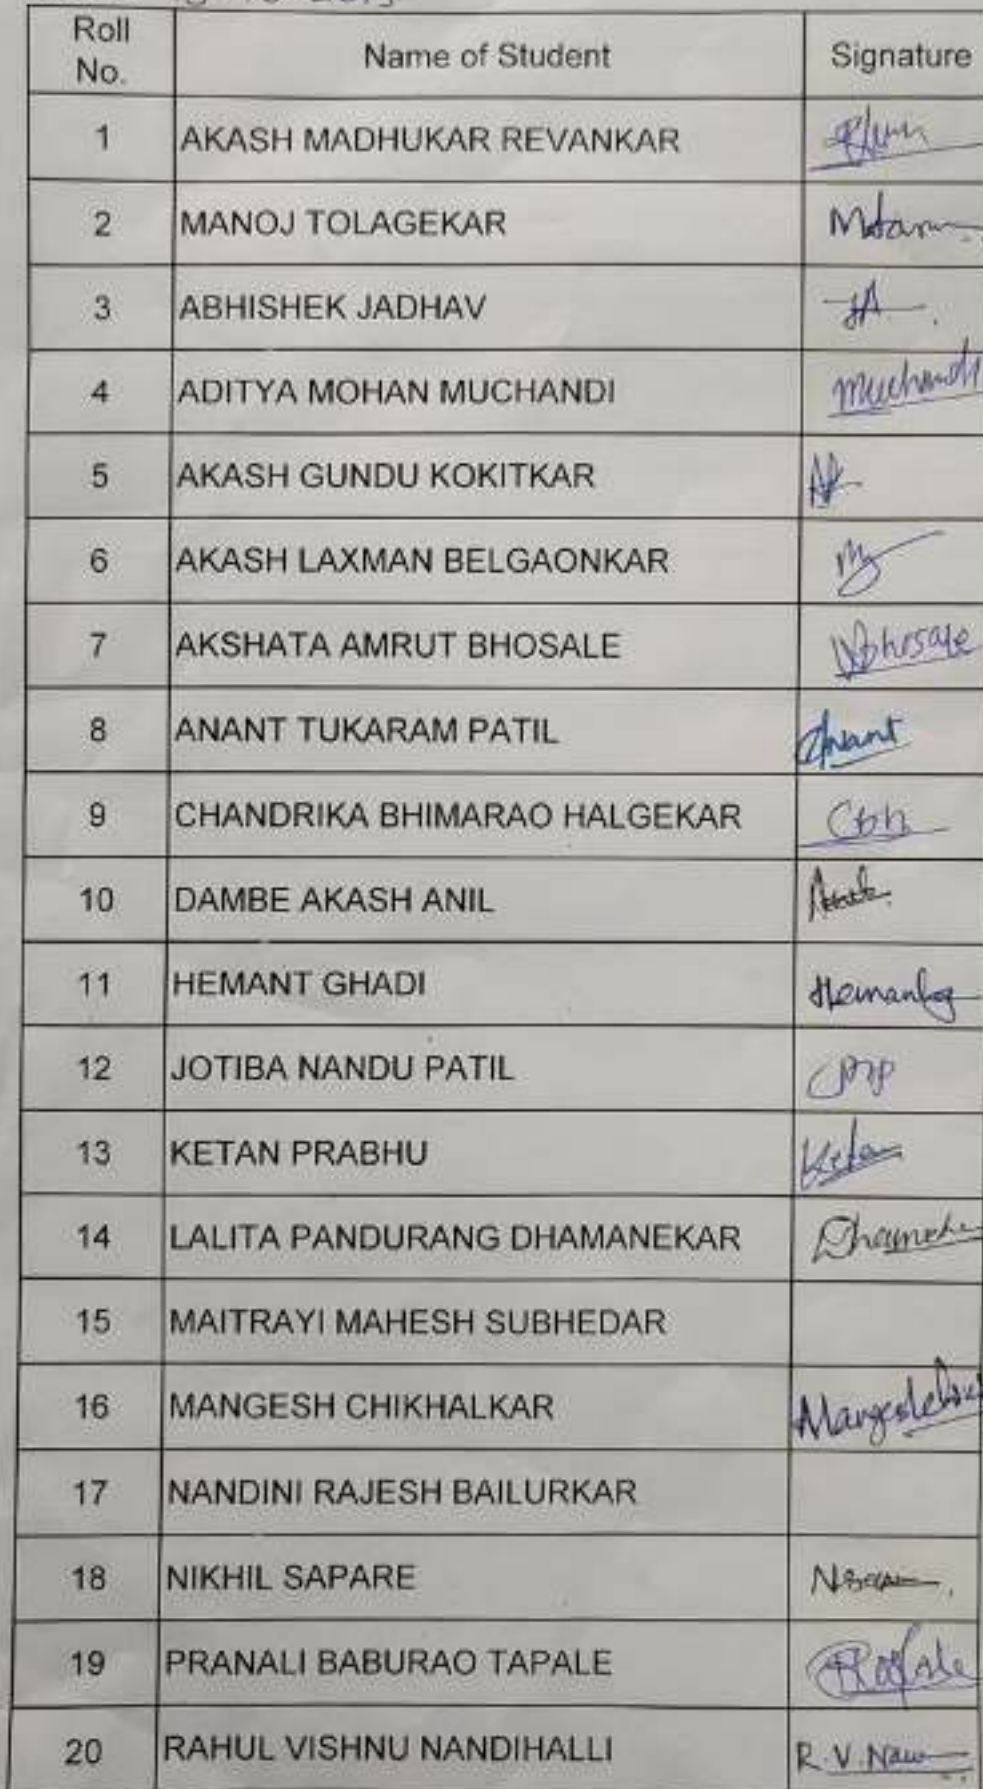 Roll No. Name of Student Signature
1 AKASH MADHUKAR REVANKAR
2 MANOJ TOLAGEKAR
3 ABHISHEK JADHAV JA
4 ADITYA MOHAN MUCHANDI Muchandi
5 AKASH GUNDU KOKITKAR AK
6 AKASH LAXMAN BELGAONKAR
7 AKSHATA AMRUT BHOSALE Abhosale
8 ANANT TUKARAM PATIL Anant
9 CHANDRIKA BHIMARAO HALGEKAR Cbh
10 DAMBE AKASH ANIL
11 HEMANT GHADI Hemantg
12 JOTIBA NANDU PATIL
13 KETAN PRABHU Ketan
14 LALITA PANDURANG DHAMANEKAR
15 MAITRAYI MAHESH SUBHEDAR
16 MANGESH CHIKHALKAR
17 NANDINI RAJESH BAILURKAR
18 NIKHIL SAPARE
19 PRANALI BABURAO TAPALE
20 RAHUL VISHNU NANDIHALLI R.V.